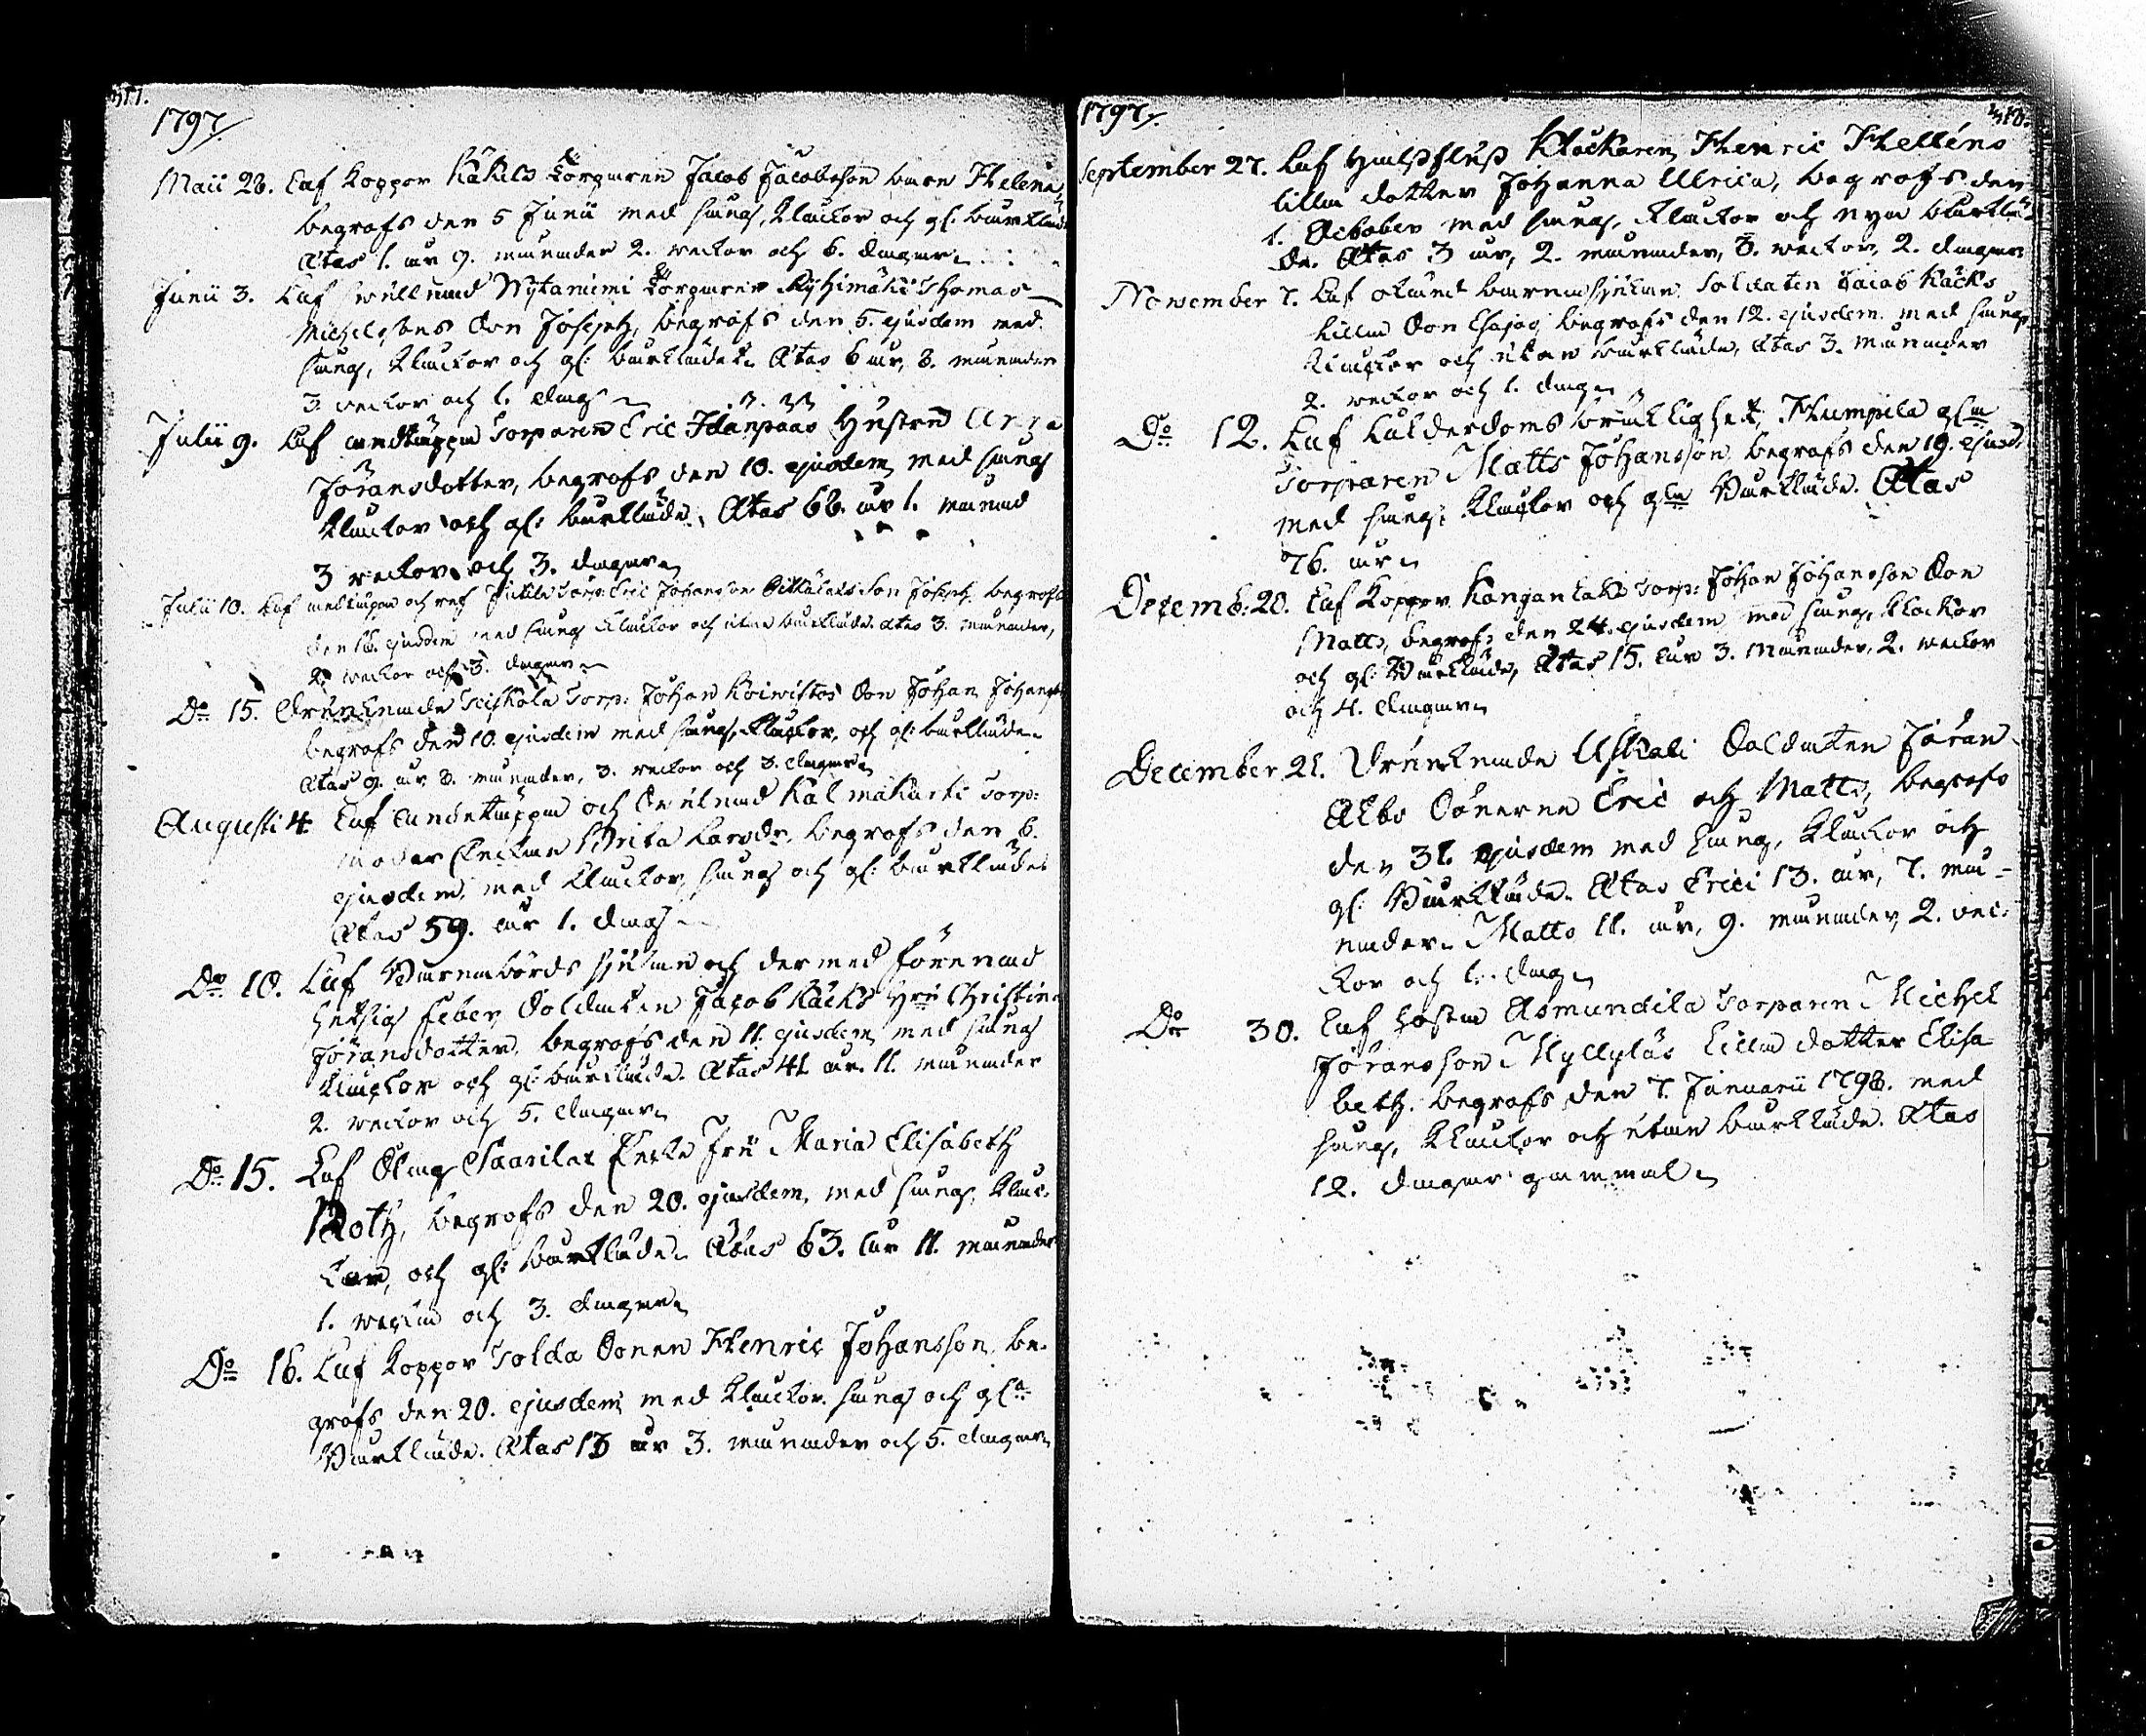 1797
Maii 28. Af koppor Käkilä torparen Jacob Jacobsson barn Helena,
begrofs den 5 Junii med sång, klackor och gl: bårkläde
Ætas 1. år 9. månader 2. veckor och 6. dagar.
Junii 3. Af swullnad Nytaniemi torparen Ryhimäki Thomas
Michelssons Son Joseph, begrofs den 5. ejusdem med
sång, klackor och gl: bårkläde. Ætas 6 år, 8. månader
3. veckor och 1. dag
Julii 9. Af andtäppa Torparen Eric Idänpääs Hustru Anna
Jöransdotter, begrofs den 10. ejusdem med sång
klackor och gl: bårkläde. Ætas 66. år 1. månad
3 veckor och 3. dagar
Julii 10. Af andtäppa och ref Torp: Eric Johansson Son Joseph, begrofs
den 16. ejusdem med sång klackor och utan bårkläde. Ætas 3. månader,
2. veckor och 3. dagar
Do 15. Drunknade Torp: Johan Koivistos Son Johan Johansson
begrofs den 10. ejusdem med sång, klackor, och gl: bårkläde.
Ætas 9. år 8. månader, 3. veckor och 3. dagar
Augusti 4 Af andtäppa och Swulnad Kalmakurki Torp:
moder Enkan Brita Larsdr, begrofs den 6.
ejusdem, med klackor, sång och gl: bårkläde
Ætas 59. år 1. dag
Do 10. Af Barnbörds sjukan och der med förenad
hetsig feber, Soldaten Jacob Käcks Hru Christina
Jöransdotter, begrofs den 11. ejusdem, med sång
klackor och gl: bårkläde. Ætas 41 år. 11. månader
2. veckor och 5. dagar
Do 15. Af Slag Saarilax Enke Fru Maria Elisabeth
Roth, begrofs den 20. ejusdem, med sång, klac-
kor, och gl: bårkläde. Ætas 63. år 11. månader
1. vecka och 3. dagar
Do 16. Af koppor Tolda Sonen Henric Johansson, be-
grofs den 20. ejusdem, med klackor, sång och gla
Bårkläde. Ætas 13 år 3. månader och 5. dagar
1797.
September 27. Af Halsfluss Klåckaren Henric Helléns
lilla dotter Johanna Ulrica, begrofs den
1. October med sång, klackor och nya bårklä-
de. Ætas 3 år, 2. månader, 3. veckor, 2. dagar
November 7. Af okänd barnasjukan, Soldaten Jacob Käcks
lilla Son Esajas, begrofs den 12. ejusdem. med sång,
klackor och utan bårkläde, Ætas 3. månader
2. veckor och 1. dag
Do 12. Af ålderdoms bräcklighet, Humpila gla
Torparen Matts Johansson, begrofs den 19. ejusd.
med sång, klackor och gla Bårkläde. Ætas
76. år
Decemb: 20. Af koppor Kangantaks Torp: Johan Johansson Son
Matts, begrofs den 24. ejusdem, med sång, klackor
och gl: Bårkläde, Ætas 15. år 3. månader, 2. veckor
och 4. dagar
December 21. Drunknade Uskali Soldaten Jöran
Albs Sönerne Eric och Matts, begrofs
den 31. ejusdem med sång, klackor och
gl: Bårkläde. Ætas Erici 13. år, 7. må-
nader. Matts 11. år, 9. månader, 2. vec-
kor och 1. dag
Do 30. Af hosta Asmundila Torparen Michel
Jöransson Myllyläs lilla dotter Elisa
beth. begrofs den 7. Januarii 1798. med
sång, klackor och utan bårkläde. Ætas
12. dagar gammal